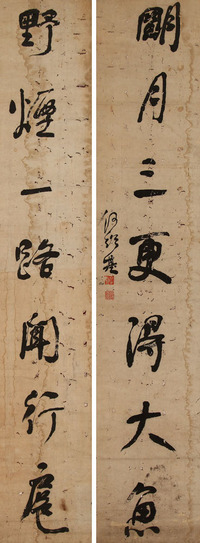 朙月三更得大魚
何紹基
野煙一路聞行扈